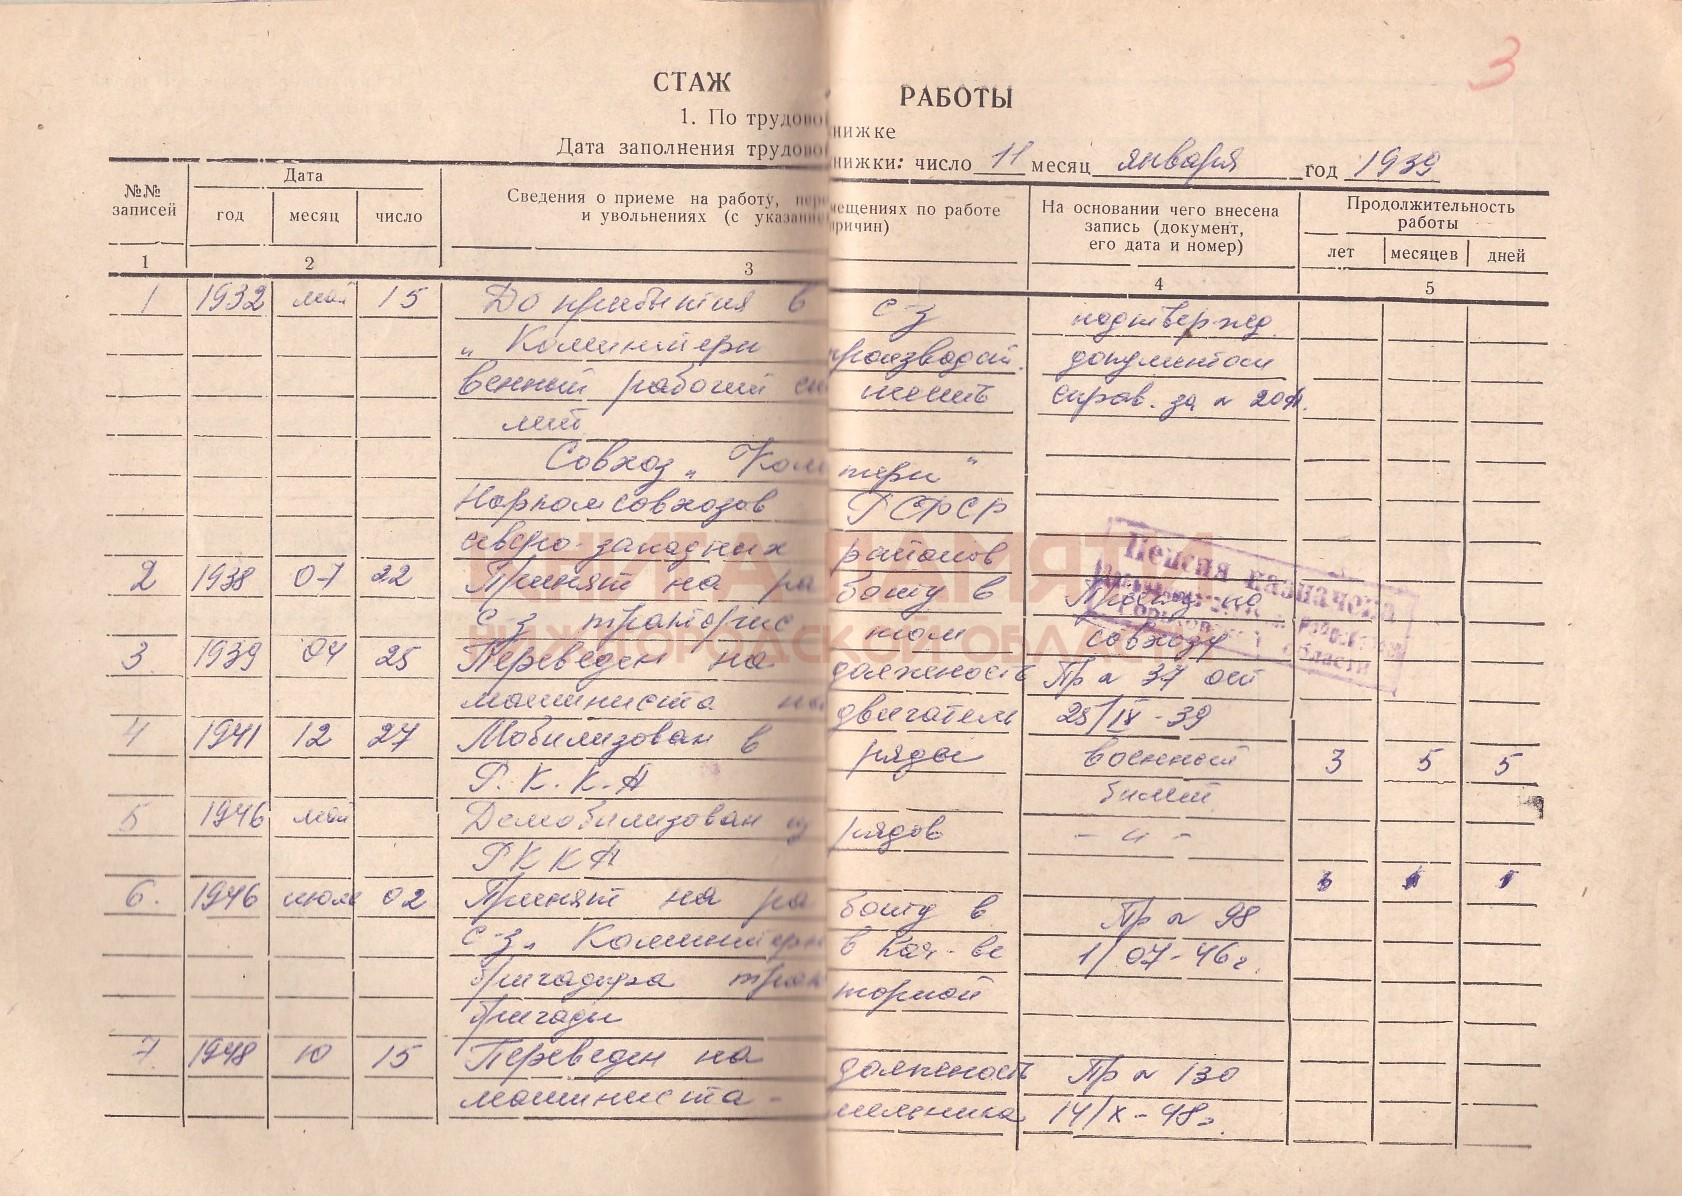 3
СТАЖ РАБОТЫ
1. По трудово нижке
Дата заполнения трудово нижки: число 11 месяц января год 1939
№№ записей
Дата
год месяц число
Сведения о приеме на работу, пере мещениях по работе
и увольнениях (с указание причин)
На основании чего внесена
запись (документ,
его дата и номер)
Продолжительность
работы
лет месяцев дней
1 2 3 4 5
1 1932 май 15 До прибытия в с-з подтвержд.
„Коминтерн производст. документом
венный рабочий ше справ. за № 20
лет
Совхоз „Ком терн"
Наркомсовхозов РСФСР
северо-западных районов
2 1938 07 22 Принят на ра боту в
с-з тракторис том совхозу
3 1939 04 25 Переведен на должность Пр № 37 от
машиниста на двигатель 25/IX-39
4 1941 12 27 Мобилизован в ряды военный 3 5 5
Р.К.К.А билет
5 1946 май Демобилизован из рядов - " -
РККА
6. 1946 июль 02 Принят на ра боту в Пр № 98
с-з „Коминтерн в кач-ве 1/07-46 г.
бригадира трак торной
бригады
7. 1948 10 15 Переведен на должность Пр № 130
машиниста- мельника 14/X-48г.
Пенсия назначена
области
КНИГА ПАМЯТИ
НИЖГОРОДСКОЙ ОБЛАСТИ